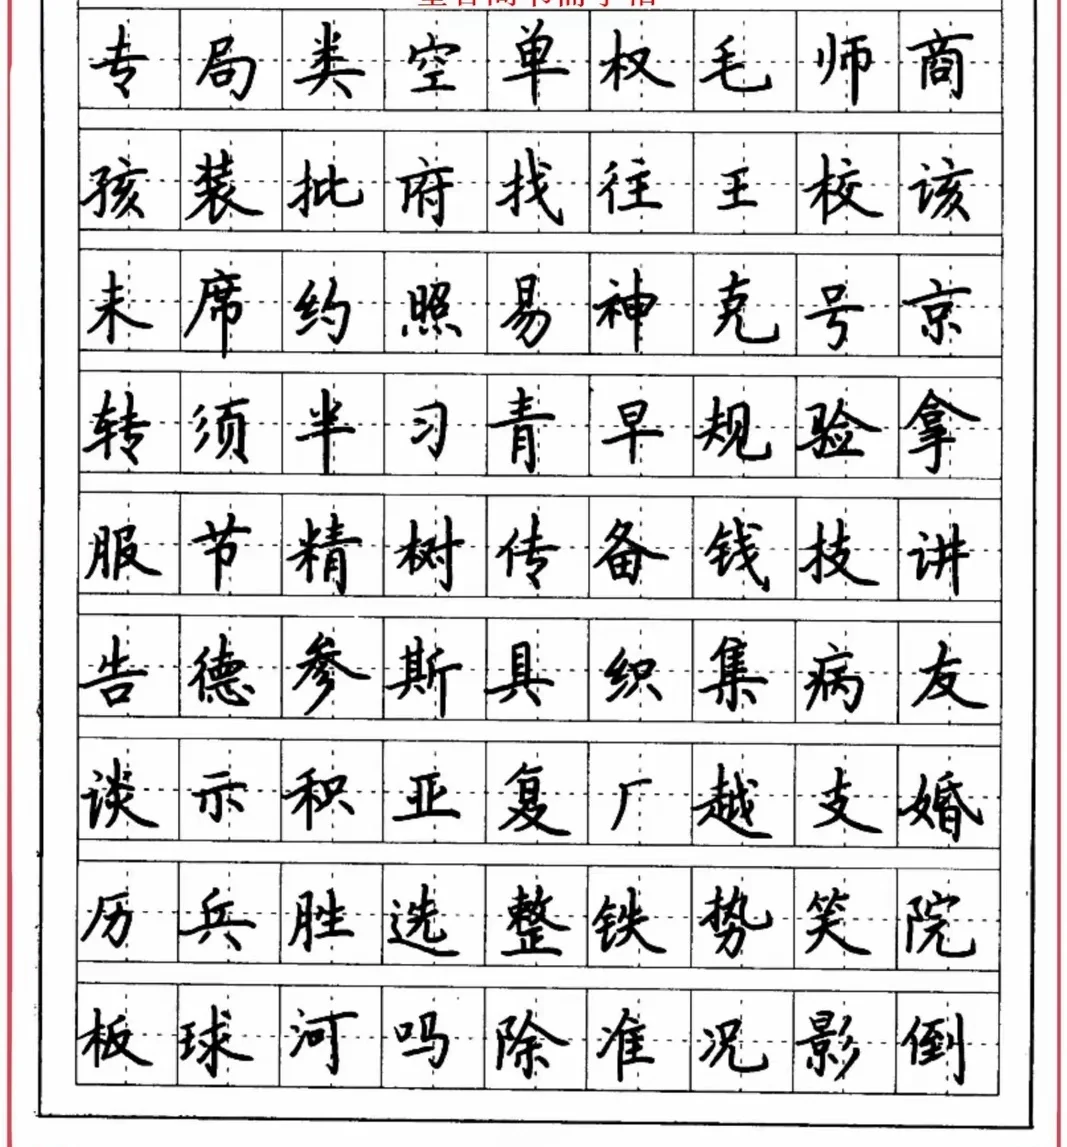 专局类空单权毛师商
孩装批府找往王校该
未席约照易神克号京
转须半习青早规验拿
服节精树传备钱技讲
告德参斯具织集病友
谈示积亚复厂越支婚
历兵胜选整铁势笑院
板球河吗除准况影倒